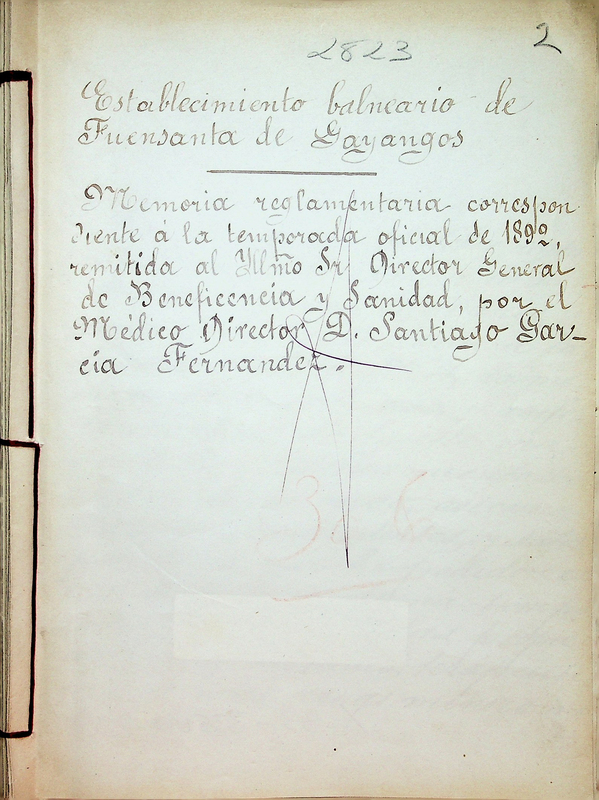 2823
2
Establecimiento balneario de
Fuensanta de Gayangos
Memoria reglamentaria correspon
diente á la temporada oficial de 1892,
remitida al Yllmo Sr Director General
de Beneficencia y Sanidad, por el
Médico Director D. Santiago Gar-
cia Fernandez.